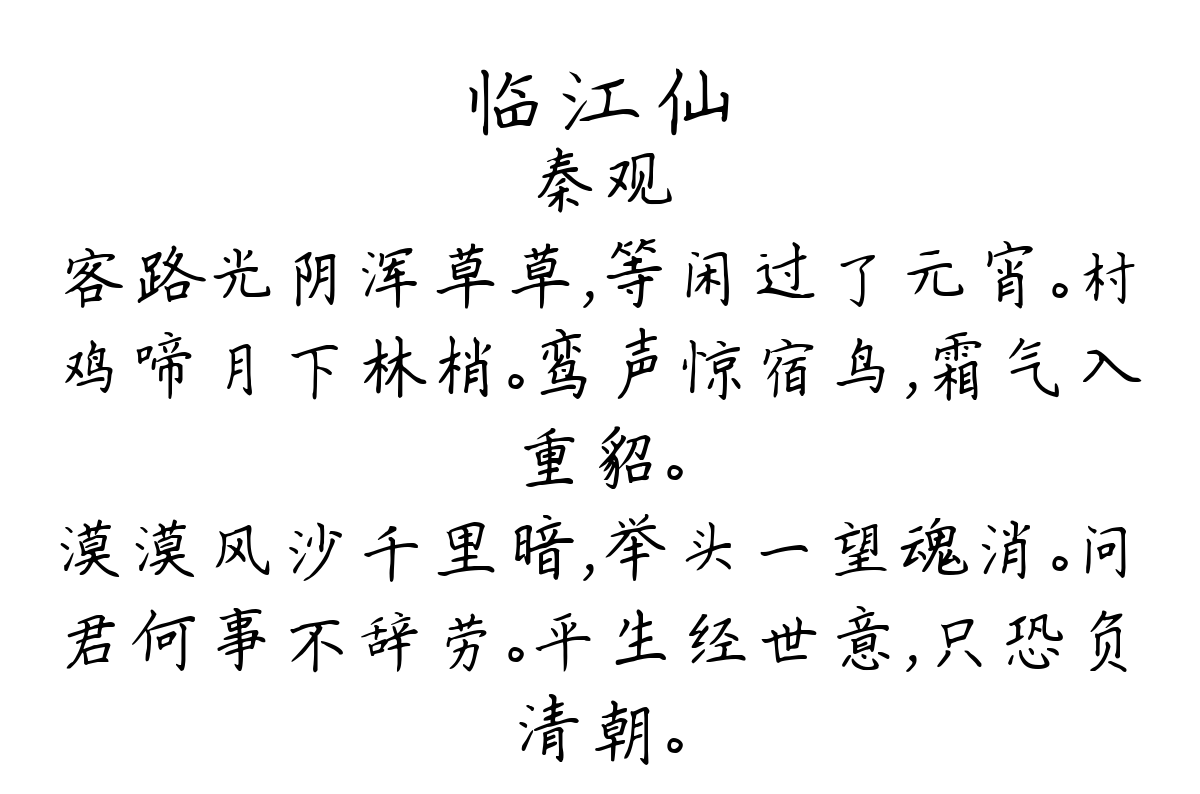 临江仙
秦观
客路光阴浑草草,等闲过了元宵。村
鸡啼月下林梢。鸾声惊宿鸟,霜气入
重貂。
漠漠风沙千里暗,举头一望魂消。问
君何事不辞劳。平生经世意,只恐负
清朝。